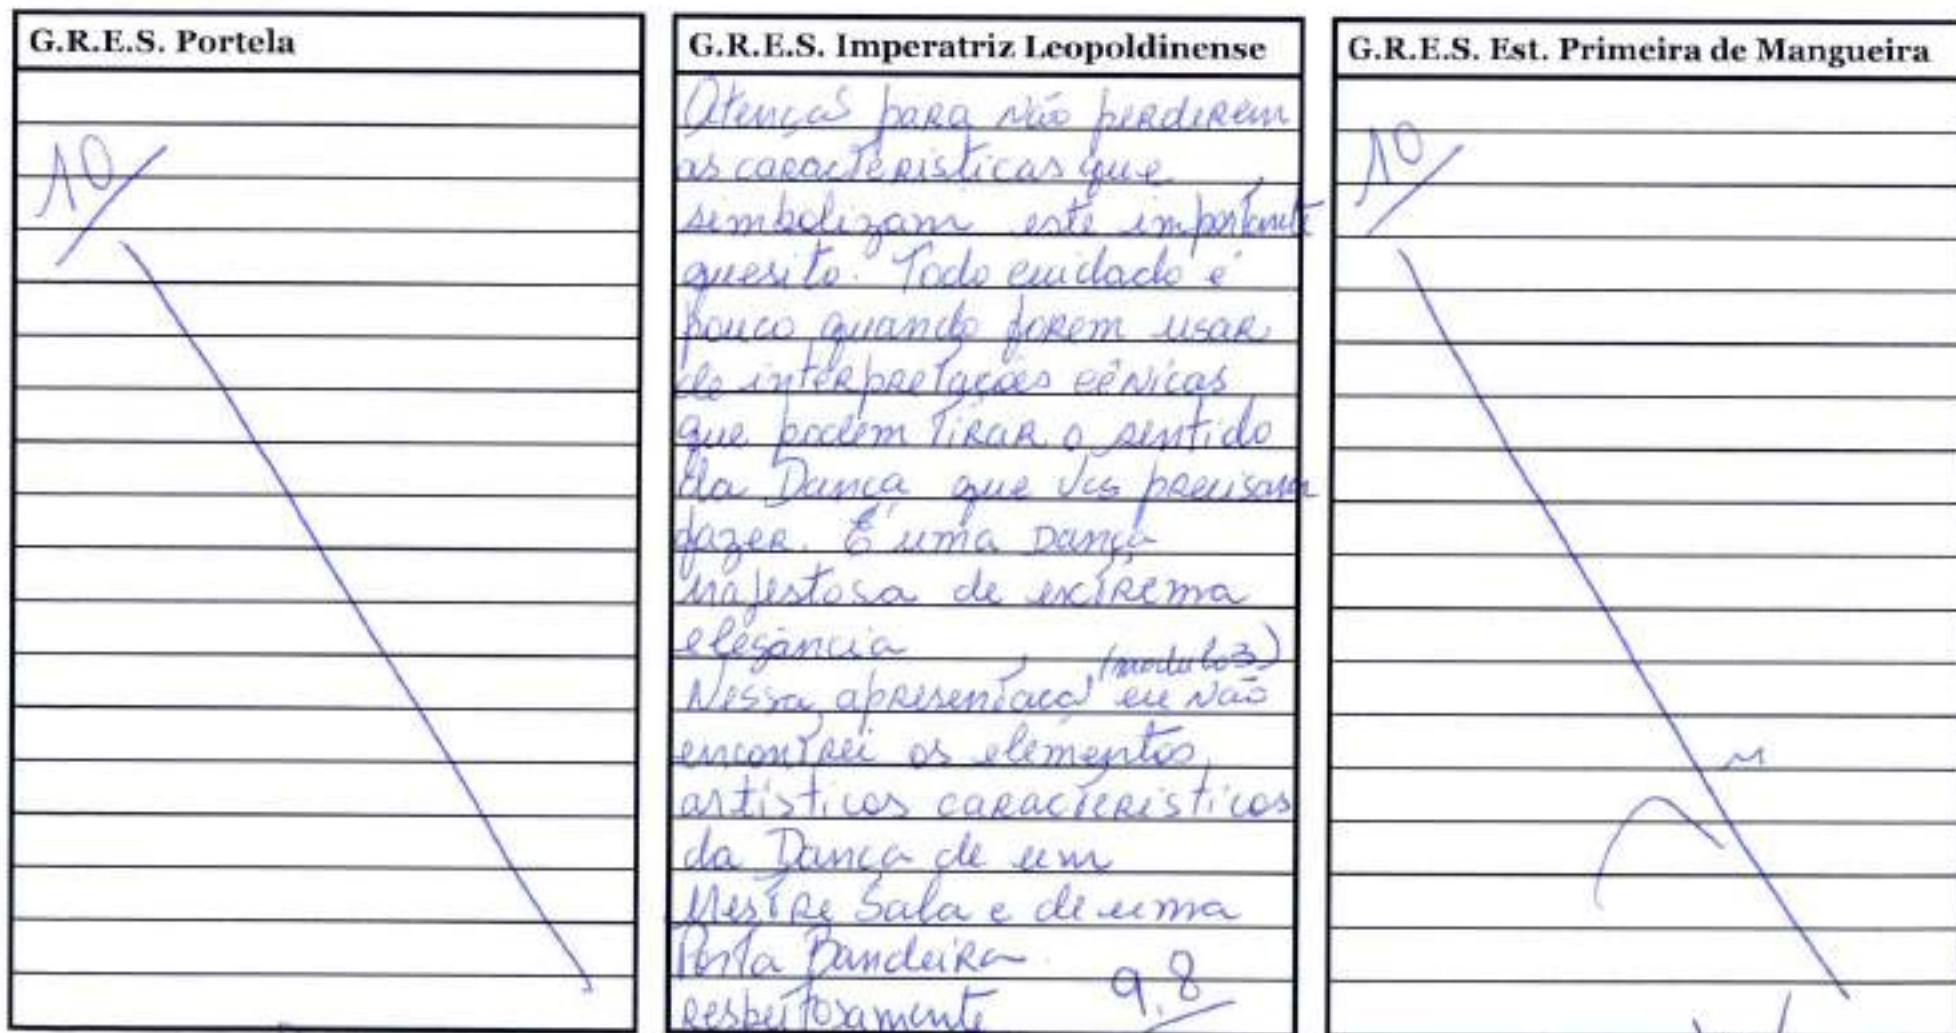 G.R.E.S. Portela
10
G.R.E.S. Imperatriz Leopoldinense
Atenção para não perderem
as características que
simbolizam este importante
quesito. Todo cuidado é
pouco quando forem usar
de interpretações cênicas
que podem tirar o sentido
da Dança que vcs precisam
fazer. É uma Dança
majestosa de extrema
elegância
(modulo 3)
Nessa apresentação eu não
encontrei os elementos
artísticos característicos
da Dança de um
Mestre Sala e de uma
Porta Bandeira.
respeitosamente 9.8
G.R.E.S. Est. Primeira de Mangueira
10